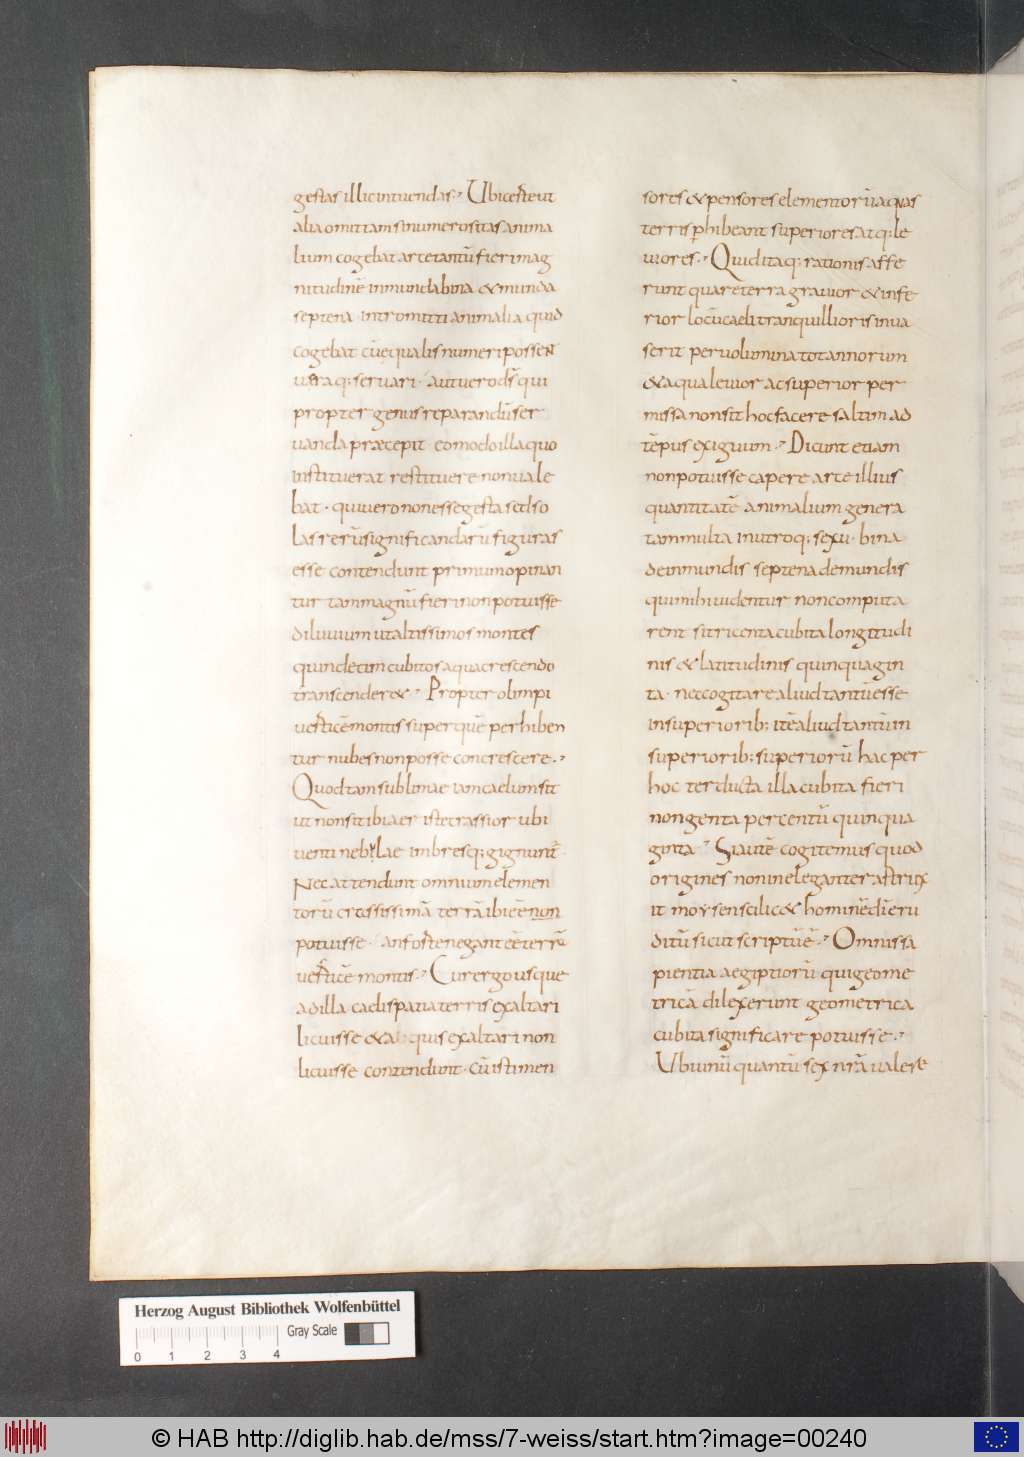 gestas illic intuendas. Ubi certe ut
alia omittam sinumerositas anima
lium cogebat arcetantū fieri mag
nitudinē inmunda bina & munda
septena intromitti animalia quid
cogebat cū ęqualis numeri possent
utraq; servari. aut vero ds̄ qui
propter genus reparandū ser
vanda præcepit eo modo illa quo
instituerat restituere non vale
bat. qui vero non esse gesta sed so
las rerū significandarū figuras
esse contendunt primum opinan
tur tam magnū fieri non potuisse
diluvium ut altissimos montes
quindecim cubitos aqua crescendo
transcender&. Propter olimpi
verticē montis super quē perhiben
tur nubes non posse concrescere.
Quod tam sublimae iam caelum sit
ut non sit ibi aer iste crassior ubi
venti nebulae imbresq; gignunt̄
Nec attendunt omnium elemen
torū crassissimā terrā ibi eē non
potuisse. an forte negant eē terrā
verticē montis. Cur ergo usque
ad illa caeli spatia terris exaltari
licuisse & aquis exaltari non
licuisse contendunt. cū isti men
sores & pensores elementorū aquas
terris phibeant superiores atq; le
viores. Quid itaq; rationis affe
runt quare terra gravior & infe
rior locū caeli tranquillioris inva
serit per volumina tot annorum
& aqua levior ac superior per
missa non sit hoc facere saltim ad
tēpus exiguum. Dicunt etiam
non potuisse capere arcē illius
quantitatē animalium genera
tam multa in utroq; sexu. bina
de inmundis septena de mundis
qui mihi videntur non computa
rent si tricenta cubita longitudi
nis & latitudinis quinquagin
ta. nec cogitare aliud tantū esse
in superiorib; itē aliud tantū in
superiorib; superiorū hac per
hoc ter ducta illa cubita fieri
nongenta per centū quinqua
ginta. Si autē cogitemus quod
origines non ineleganter astrux
it moysen scilic& hominē dī eru
ditū sicut scriptū ē. Omni sa
pientia aegiptiorū qui geome
tricā dilexerunt geometrica
cubita significare potuisse.
Ubi unū quantū sex nr̄a valere
Herzog August Bibliothek Wolfenbüttel
Gray Scale
0 1 2 3 4
© HAB http://diglib.hab.de/mss/7-weiss/start.htm?image=00240